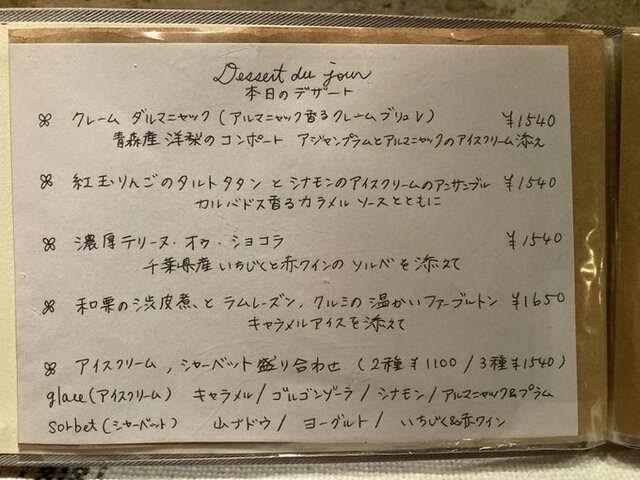 Dessert du jour
本日のデザート
クレーム ダルマニャック (アルマニャック香るクレームブリュレ) ¥1540
青森産 洋梨のコンポート アジャンプラムとアルマニャックのアイスクリーム添え
紅玉りんごのタルトタタン と シナモンのアイスクリームのアンサンブル ¥1540
カルバドス香るカラメル ソースとともに
濃厚テリーヌ・オゥ・ショコラ ¥1540
千葉県産 いちじくと赤ワインの ソルベを添えて
和栗の渋皮煮、と ラムレーズン、クルミの温かいファーブルトン ¥1650
キャラメルアイスを添えて
アイスクリーム, シャーベット盛り合わせ (2種 ¥1100 / 3種 ¥1540)
glace (アイスクリーム) キャラメル / ゴルゴンゾーラ / シナモン / アルマニャック&プラム
sorbet (シャーベット) 山ブドウ / ヨーグルト / いちじく&赤ワイン